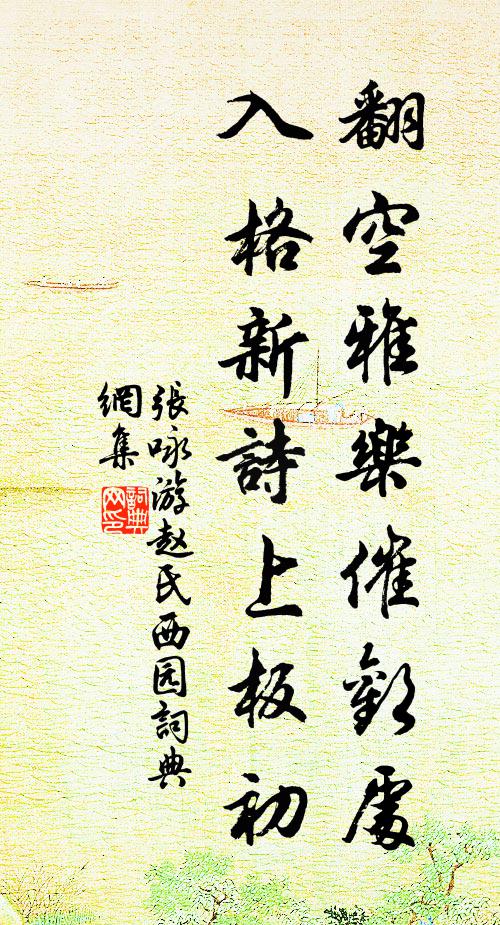 翻空雅樂催歡處
入格新詩上板初
張咏游赵氏西园詞典
網集
詞典
网印